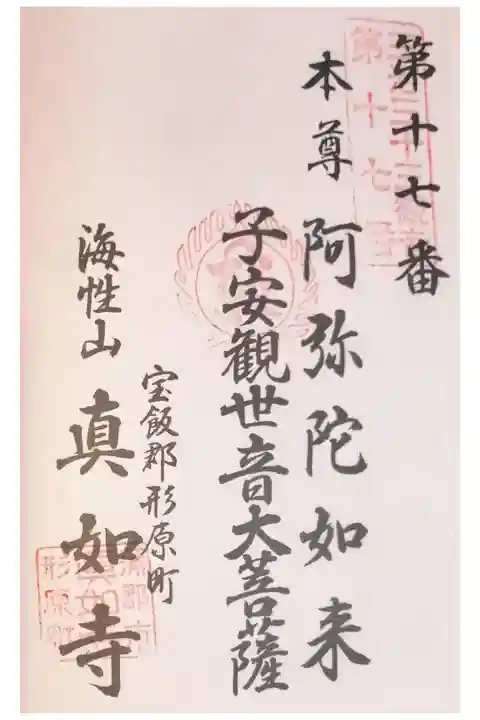 第十七番
本尊 阿弥陀如来
子安観世音大菩薩
宝飯郡形原町
海性山 真如寺
第十七番
蒲郡市
真如寺
形原町